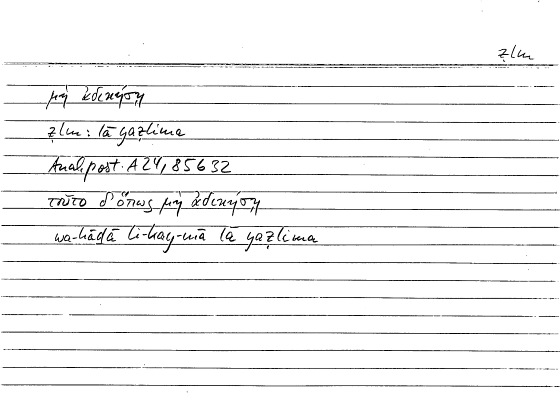 ẓlm
μὴ ἀδικήσῃ
ẓlm: lā yaẓlima
Anal. post. A 24, 85b32
τοῦτο δ' ὅπως μὴ ἀδικήσῃ
wa-hāḏā li-kay-mā lā yaẓlima